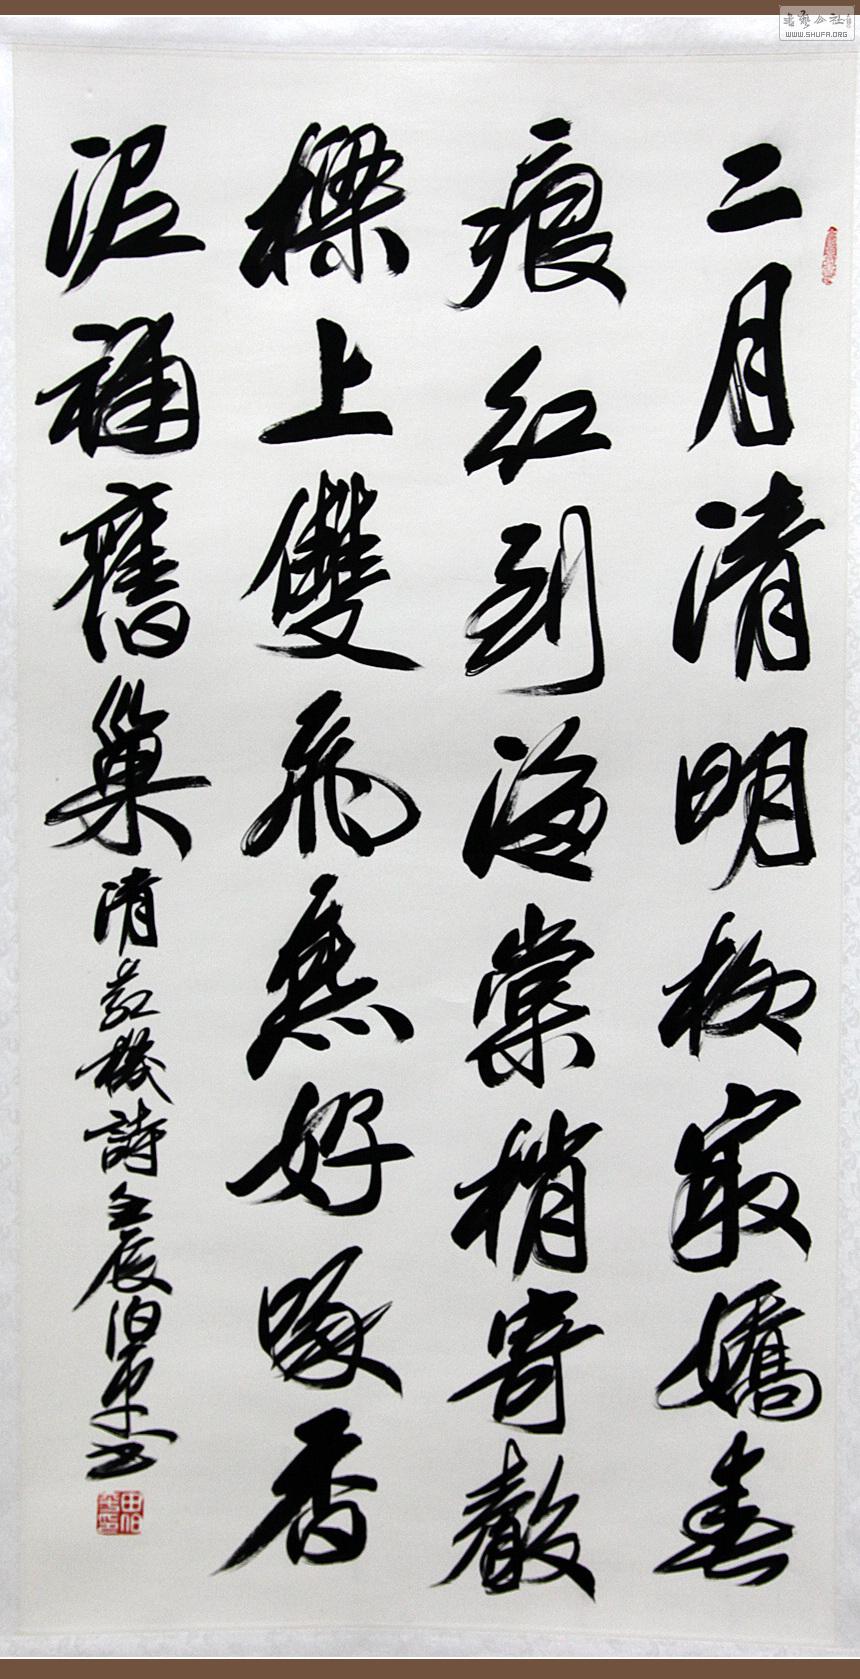 書藝公社
WWW.SHUFA.ORG
二月清明柳最嬌春
痕紅到海棠梢寄聲
樑上雙飛燕好啄香
泥補舊巢 清 機詩壬辰伯平書